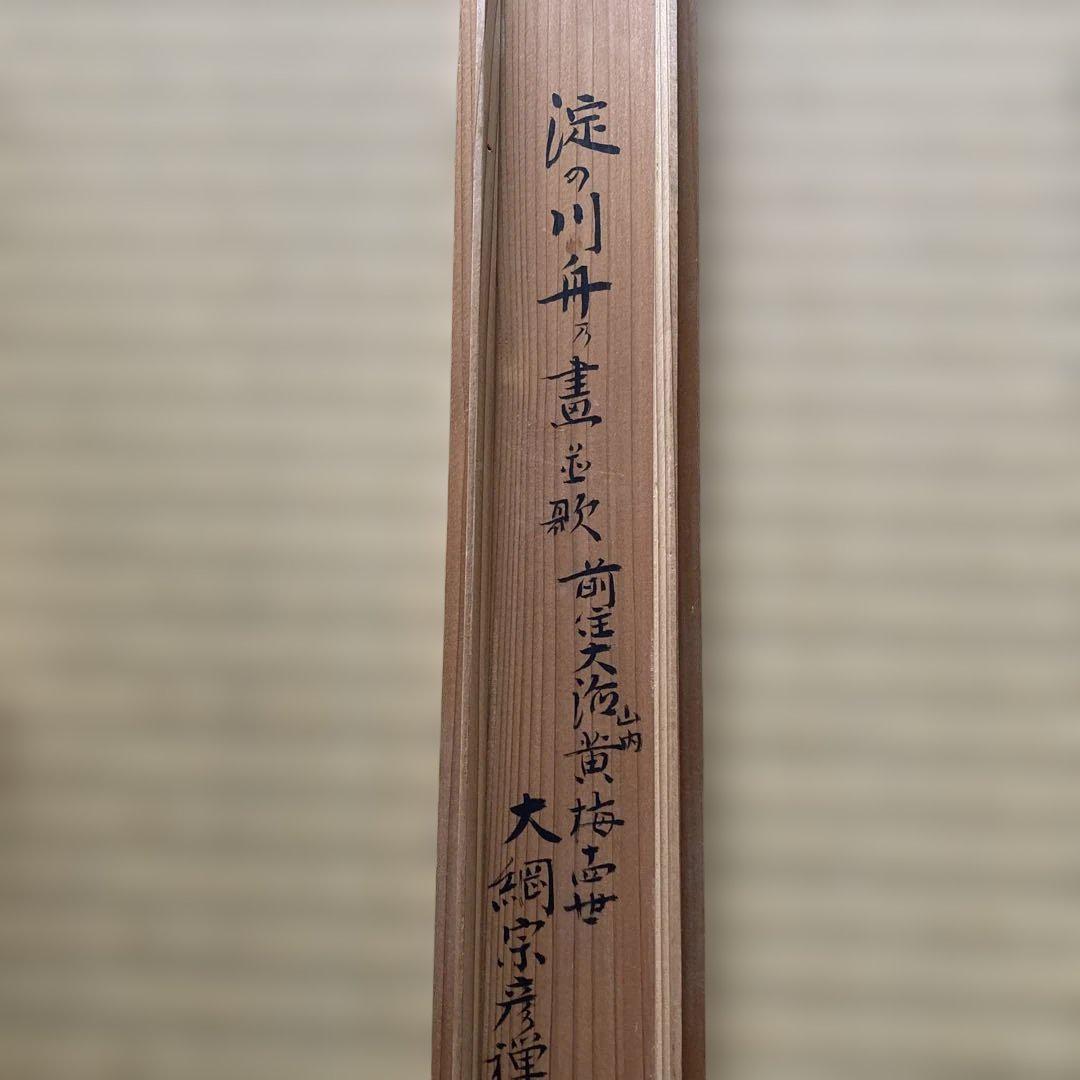 淀の川舟乃畫並歌
前住大徳山内黄梅十四世
大綱宗彦禅